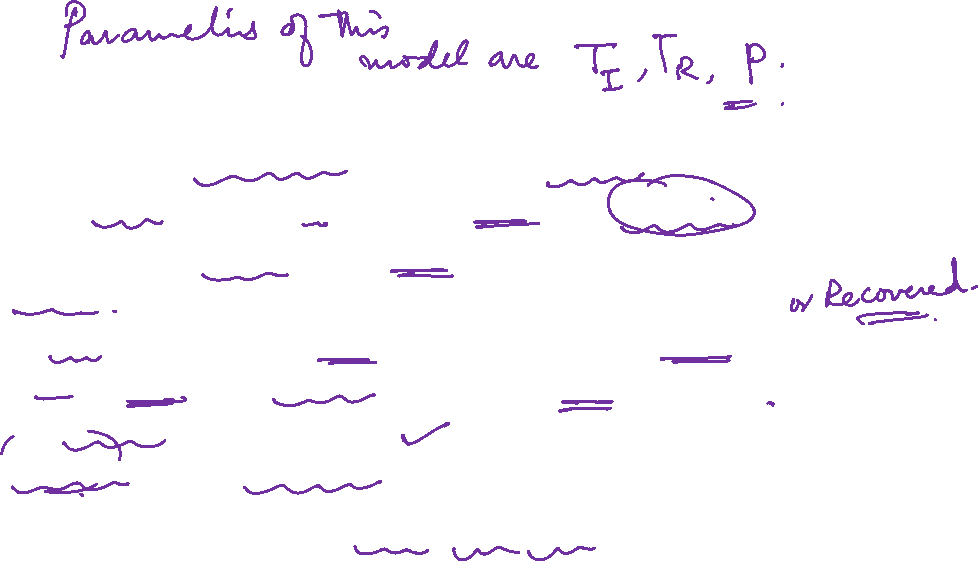 Parameters of this
model are T_I, T_R, P.
or Recovered.